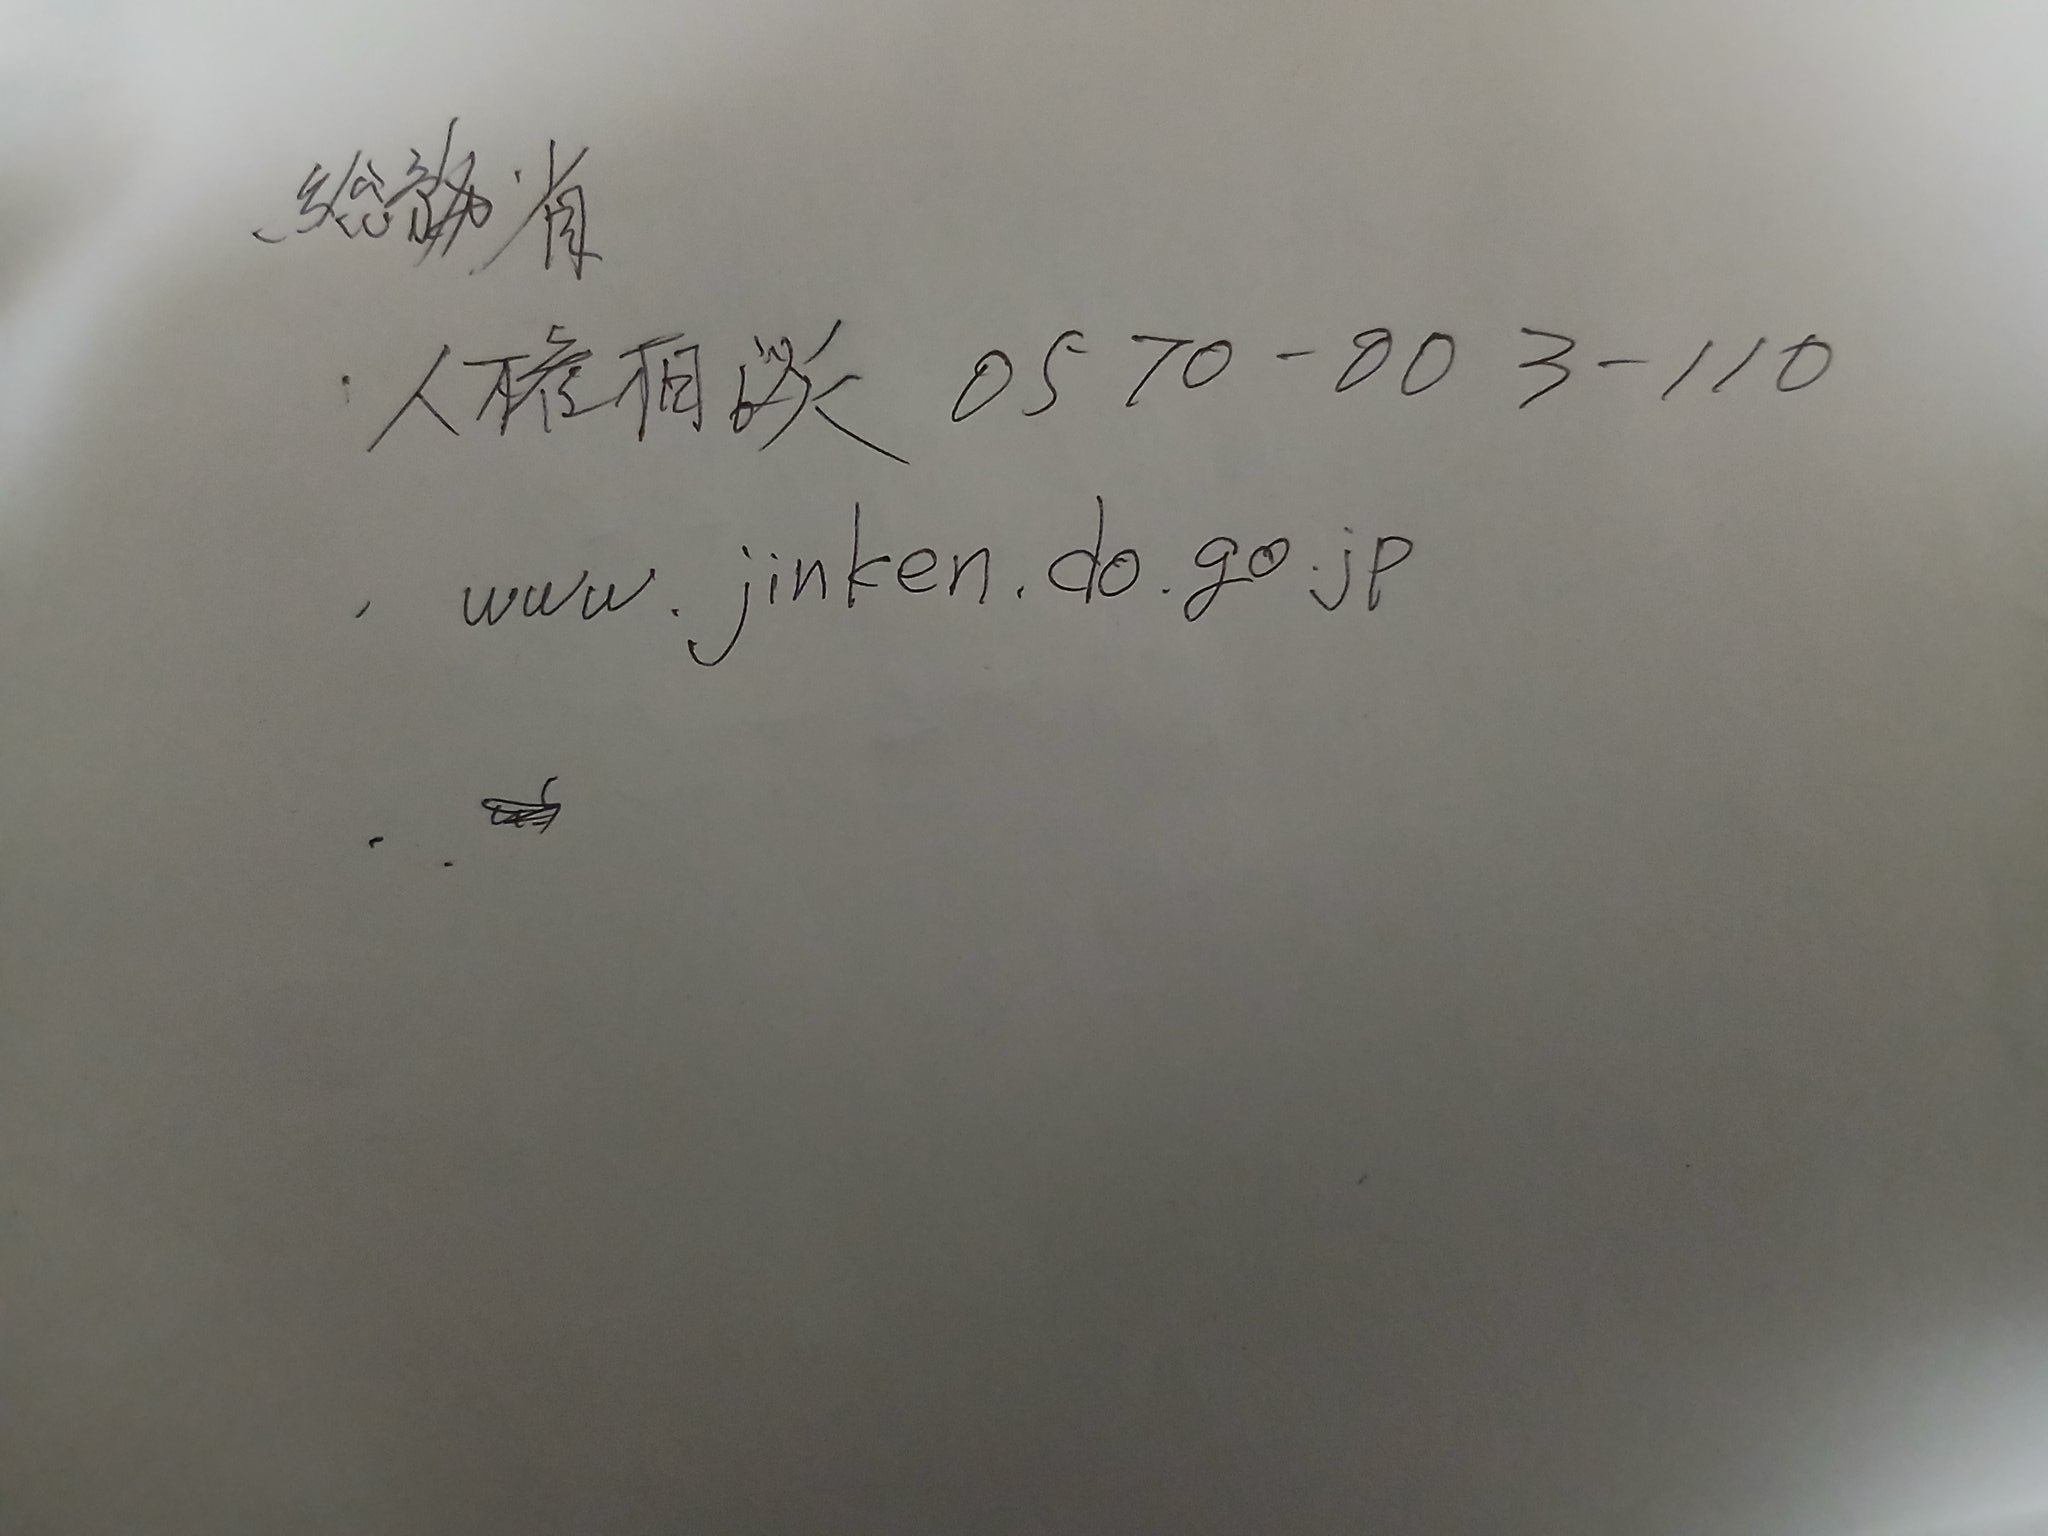 総務省
・人権相談 0570-003-110
・www.jinken.do.go.jp